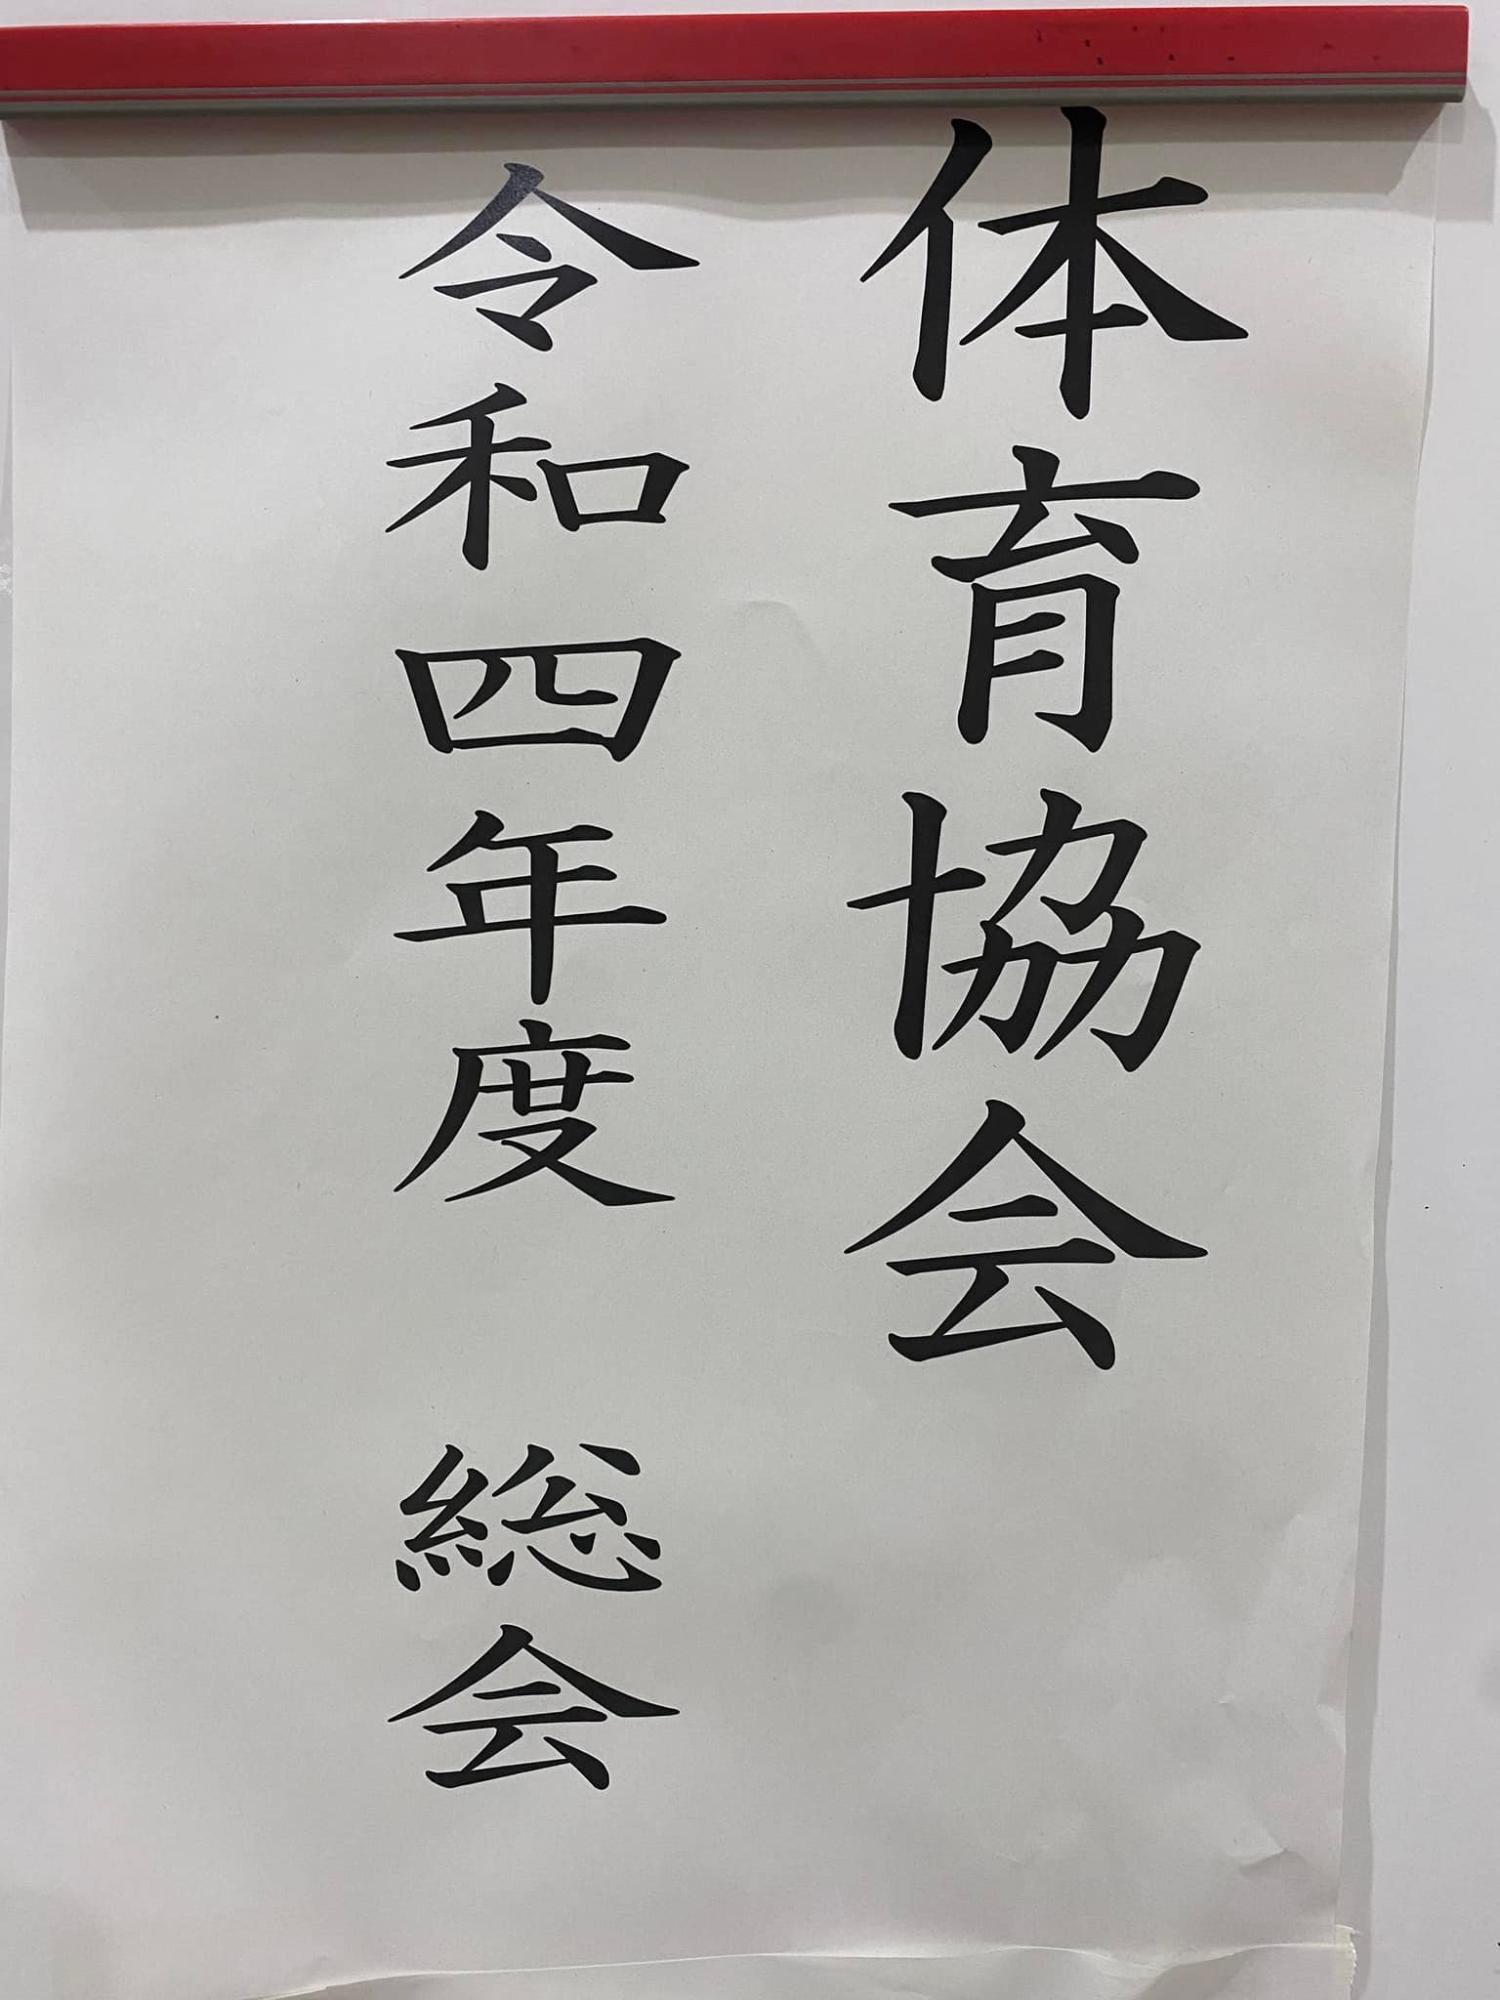 体育協会
令和四年度　総会